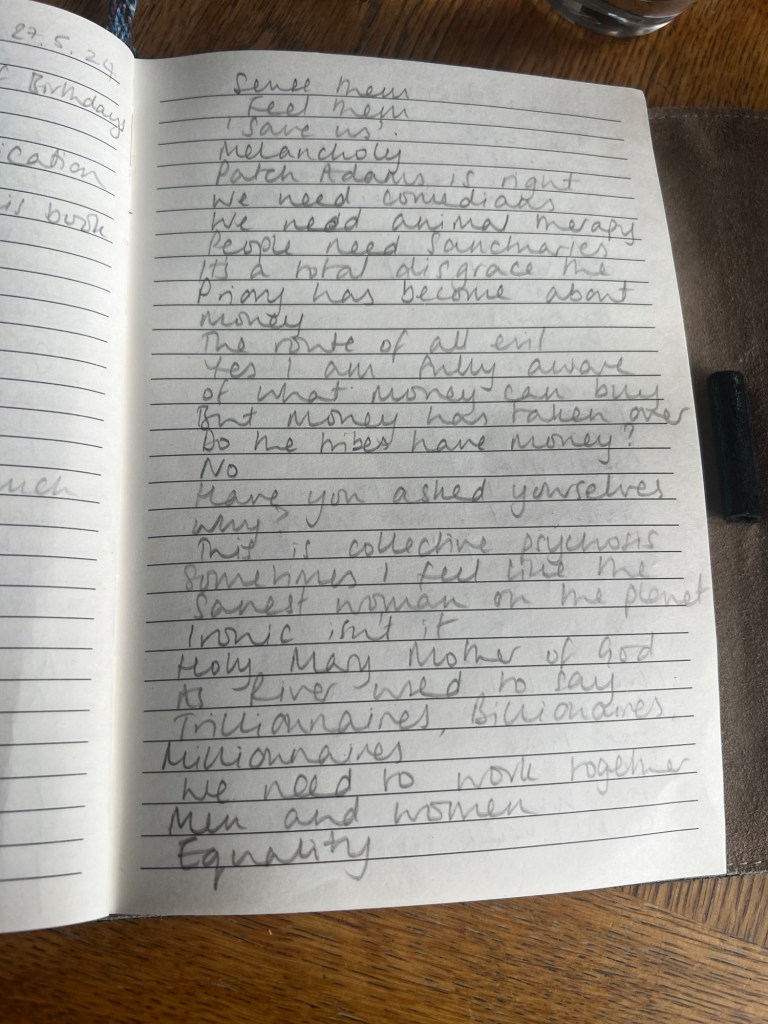 27.5.24
Birthdays
ication
is book
uch
Sense them
Feel them
'Save us'.
Melancholy
Patch Adams is right
We need comedians
We need animal therapy
People need Sanctuaries
Its a total disgrace the
Priory has become about
money
The route of all evil
Yes I am fully aware
of what money can buy
But money has taken over
Do the tribes have money?
No
Have you asked yourselves
why?
This is collective psychosis
Sometimes I feel like the
Sanest woman on the planet
Ironic isn't it
Holy Mary Mother of God
As River used to say
Trillionnaires, Billionaires,
Millionnaires
We need to work together
Men and women
Equality